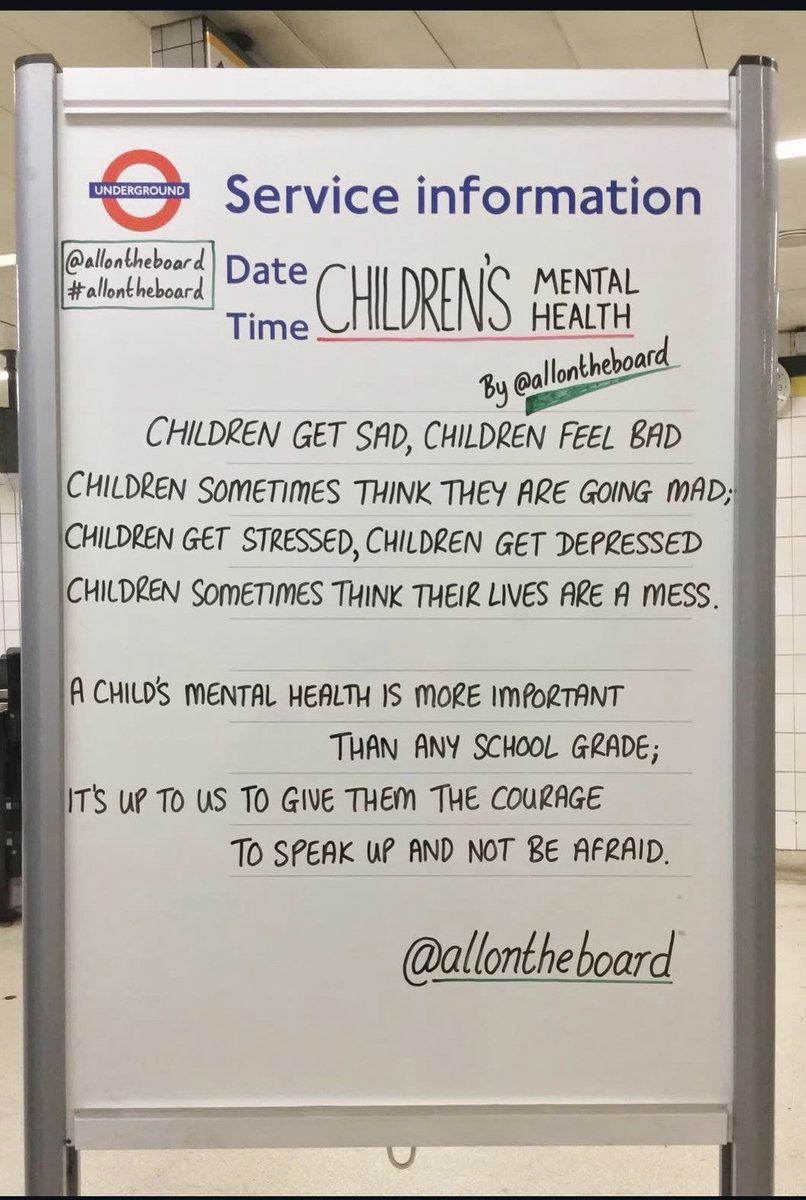 UNDERGROUND
Service information
@allontheboard
#allontheboard
Date
Time
CHILDREN'S MENTAL
HEALTH
By @allontheboard
CHILDREN GET SAD, CHILDREN FEEL BAD
CHILDREN SOMETIMES THINK THEY ARE GOING MAD;
CHILDREN GET STRESSED, CHILDREN GET DEPRESSED
CHILDREN SOMETIMES THINK THEIR LIVES ARE A MESS.
A CHILD'S MENTAL HEALTH IS MORE IMPORTANT
THAN ANY SCHOOL GRADE;
IT'S UP TO US TO GIVE THEM THE COURAGE
TO SPEAK UP AND NOT BE AFRAID.
@allontheboard